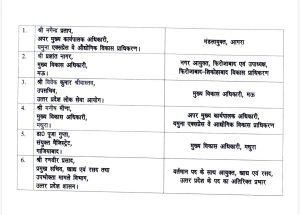 1. श्री नगेन्द्र प्रताप,
अपर मुख्य कार्यपालक अधिकारी,
यमुना एक्सप्रेस वे औद्योगिक विकास प्राधिकरण।
मंडलायुक्त, आगरा
2. श्री प्रशांत नागर,
मुख्य विकास अधिकारी,
मऊ।
नगर आयुक्त, फिरोजाबाद एवं उपाध्यक्ष,
फिरोजाबाद-शिकोहाबाद विकास प्राधिकरण
3. श्री विवेक कुमार श्रीवास्तव,
उपसचिव,
उत्तर प्रदेश लोक सेवा आयोग।
मुख्य विकास अधिकारी, मऊ
4. श्री मनीष मीना,
मुख्य विकास अधिकारी,
मथुरा।
अपर मुख्य कार्यपालक अधिकारी,
यमुना एक्सप्रेस वे औद्योगिक विकास प्राधिकरण
5. डा0 पूजा गुप्ता,
संयुक्त मैजिस्ट्रेट,
गाजियाबाद।
मुख्य विकास अधिकारी, मथुरा
6. श्री रणवीर प्रसाद,
प्रमुख सचिव, खाद्य एवं रसद तथा
उपभोक्ता मामले विभाग,
उत्तर प्रदेश शासन।
वर्तमान पद के साथ आयुक्त, खाद्य एवं रसद,
उत्तर प्रदेश के पद का अतिरिक्त प्रभार